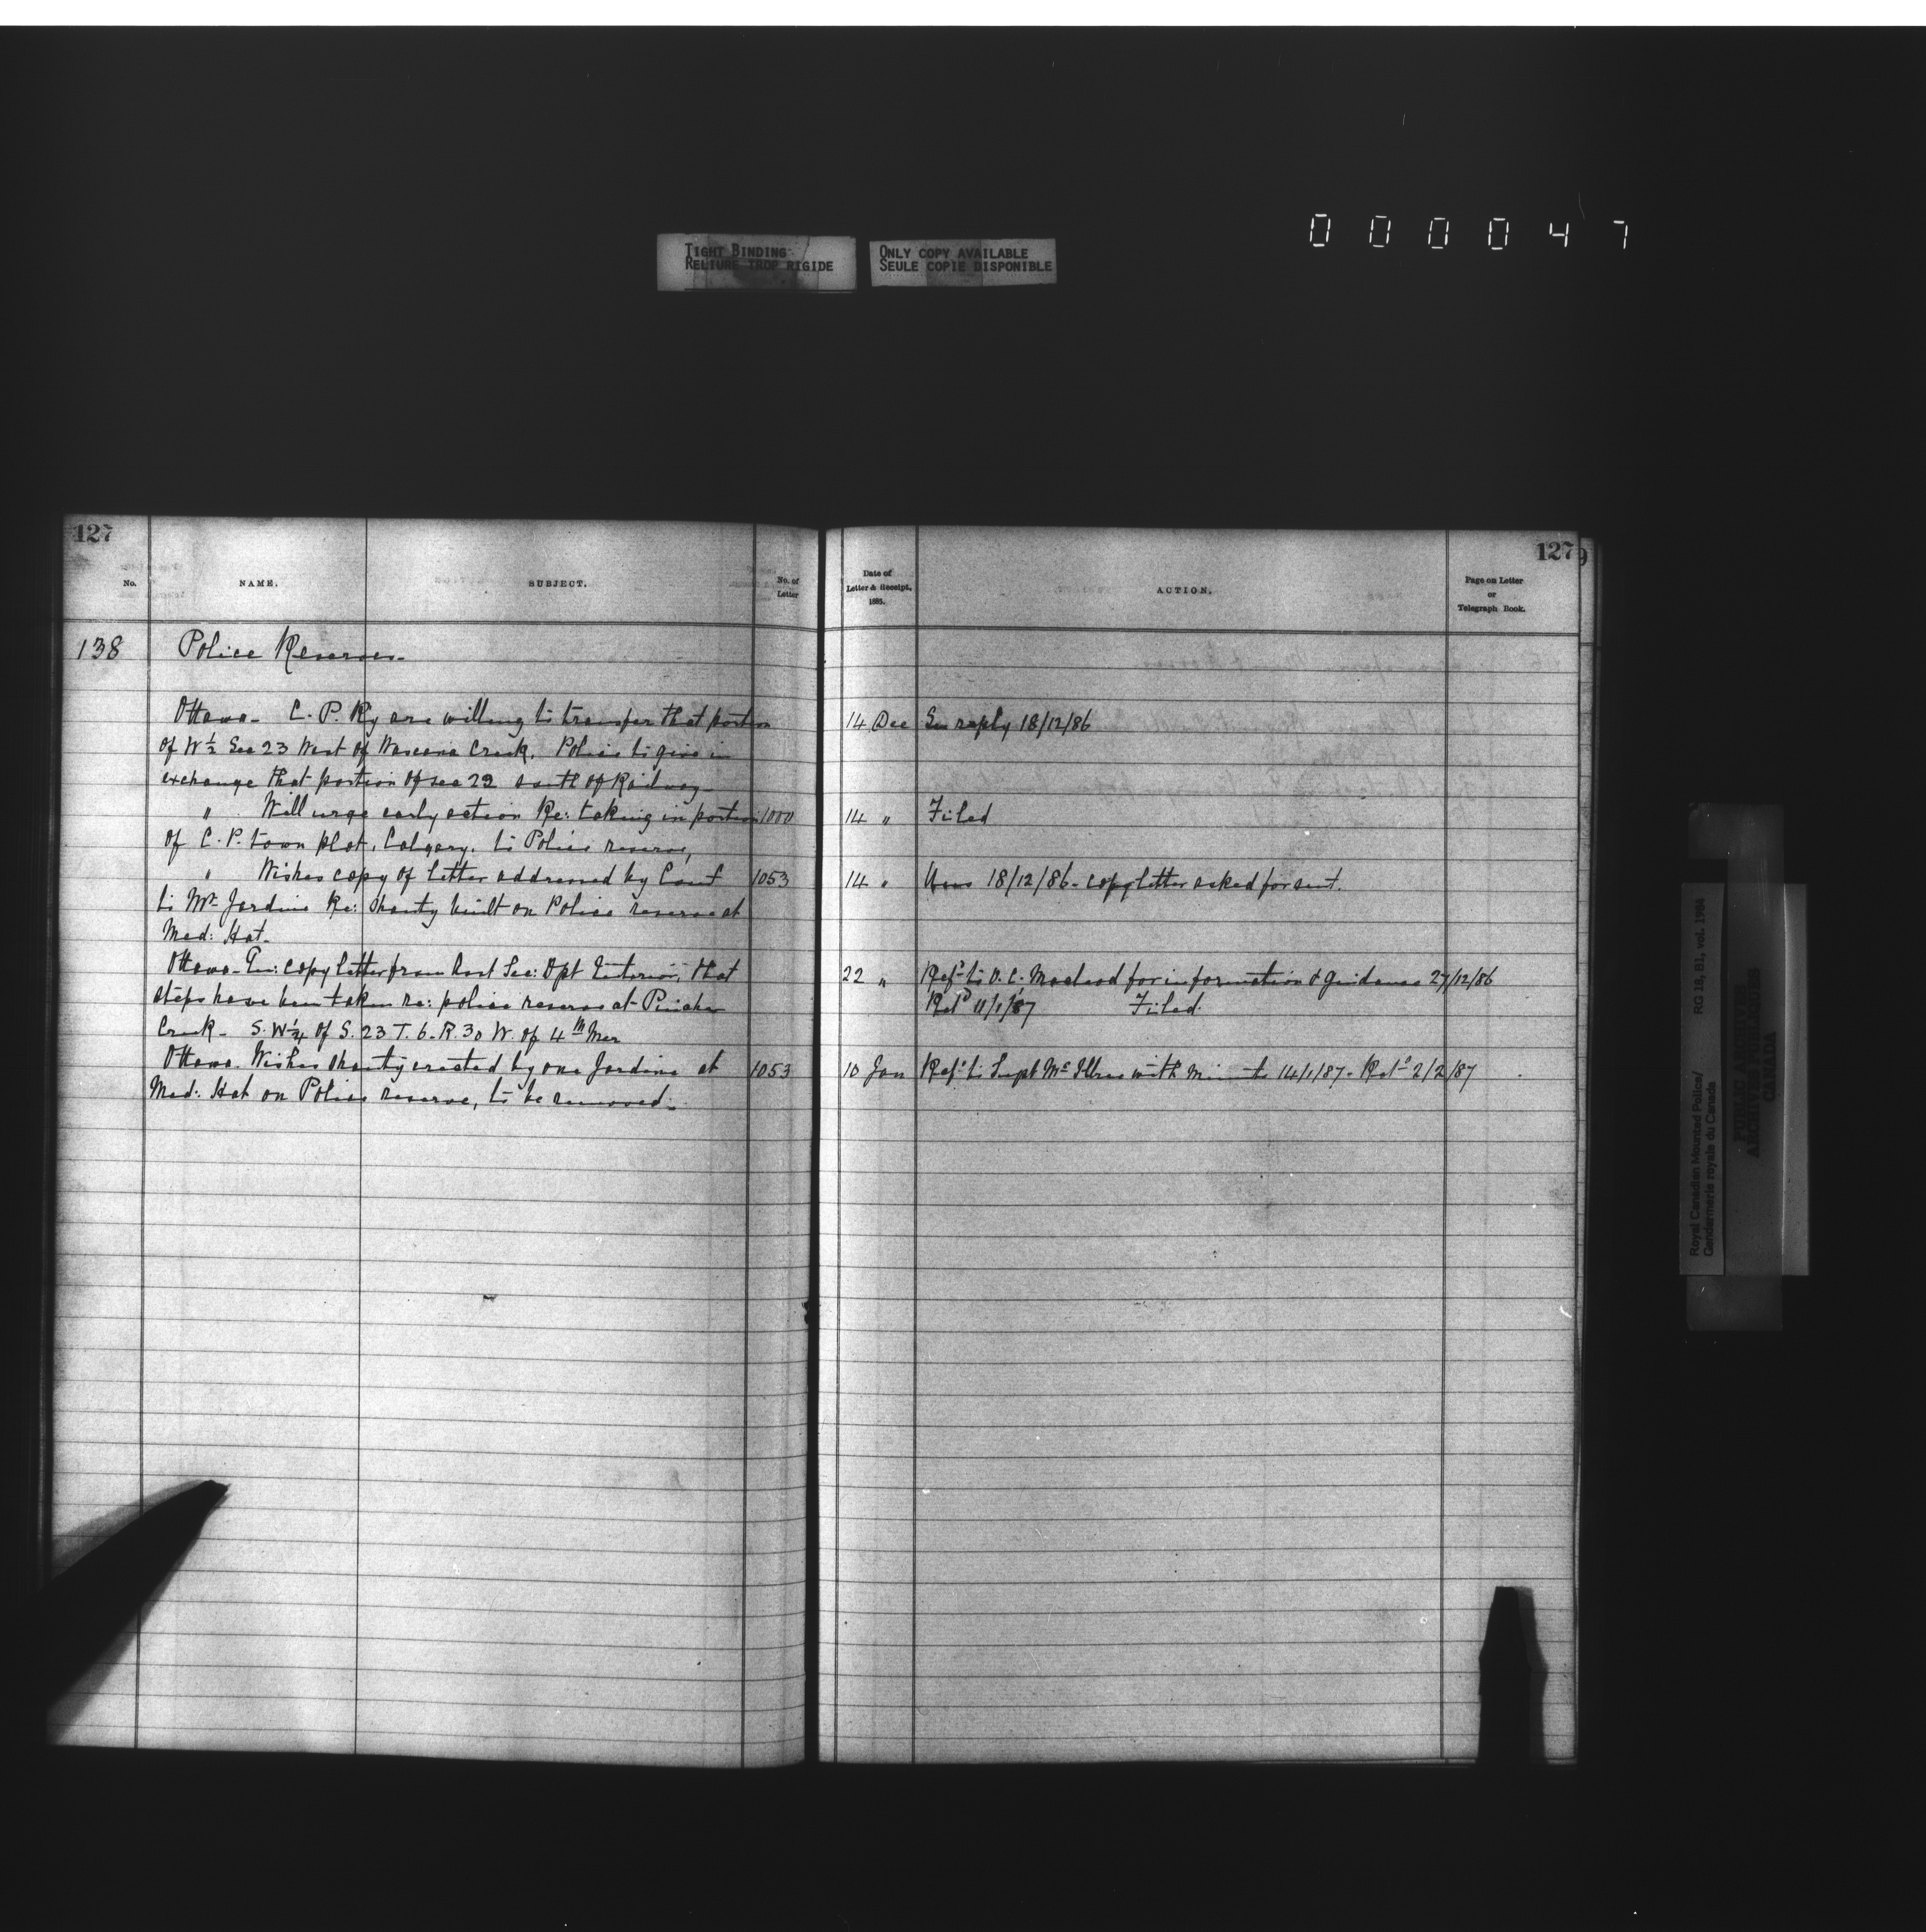 000047
TIGHT BINDING
RELIURE TROP RIGIDE
ONLY COPY AVAILABLE
SEULE COPIE DISPONIBLE
127
No.
NAME.
SUBJECT.
No. of
Letter
138 Police Reserves.
Ottawa. C. P. Ry are willing to transfer that portion
of W ½ Sec 23 West of Wascana Creek. Police to give in
exchange that portion of sec 22 south of Railway.
" Will urge early action Re: taking in portion 1000
of C. P. town plot, Calgary. to Police reserve,
" Wishes copy of letter addressed by 1053
to Mr Jardine Re: Shanty built on Police reserve at
Med: Hat.
Ottawa. En: copy letter from Sec: Dpt Interior, that
steps have been taken re: police reserve at Pincher
Creek. S. W ¼ of S. 23 T. 6. R. 30 W. of 4th Mer
Ottawa. Wishes shanty erected by one Jardine at 1053
Med: Hat on Police reserve, to be removed.
127
9
Date of
Letter & Receipt.
1885.
ACTION.
Page on Letter
or
Telegraph Book.
14 Dec reply 18/12/86
14 " Filed
14 " 18/12/86. copy letter asked for sent.
22 " Refd to O. C. Macleod for information & guidance 27/12/86
Retd 11/1/87 Filed.
10 Jan Refd to Supt McIllree with minute 14/1/87. Retd 2/2/87
Royal Canadian Mounted Police/
Gendarmerie royale du Canada
RG 18, B1, vol. 1984
PUBLIC ARCHIVES
ARCHIVES PUBLIQUES
CANADA